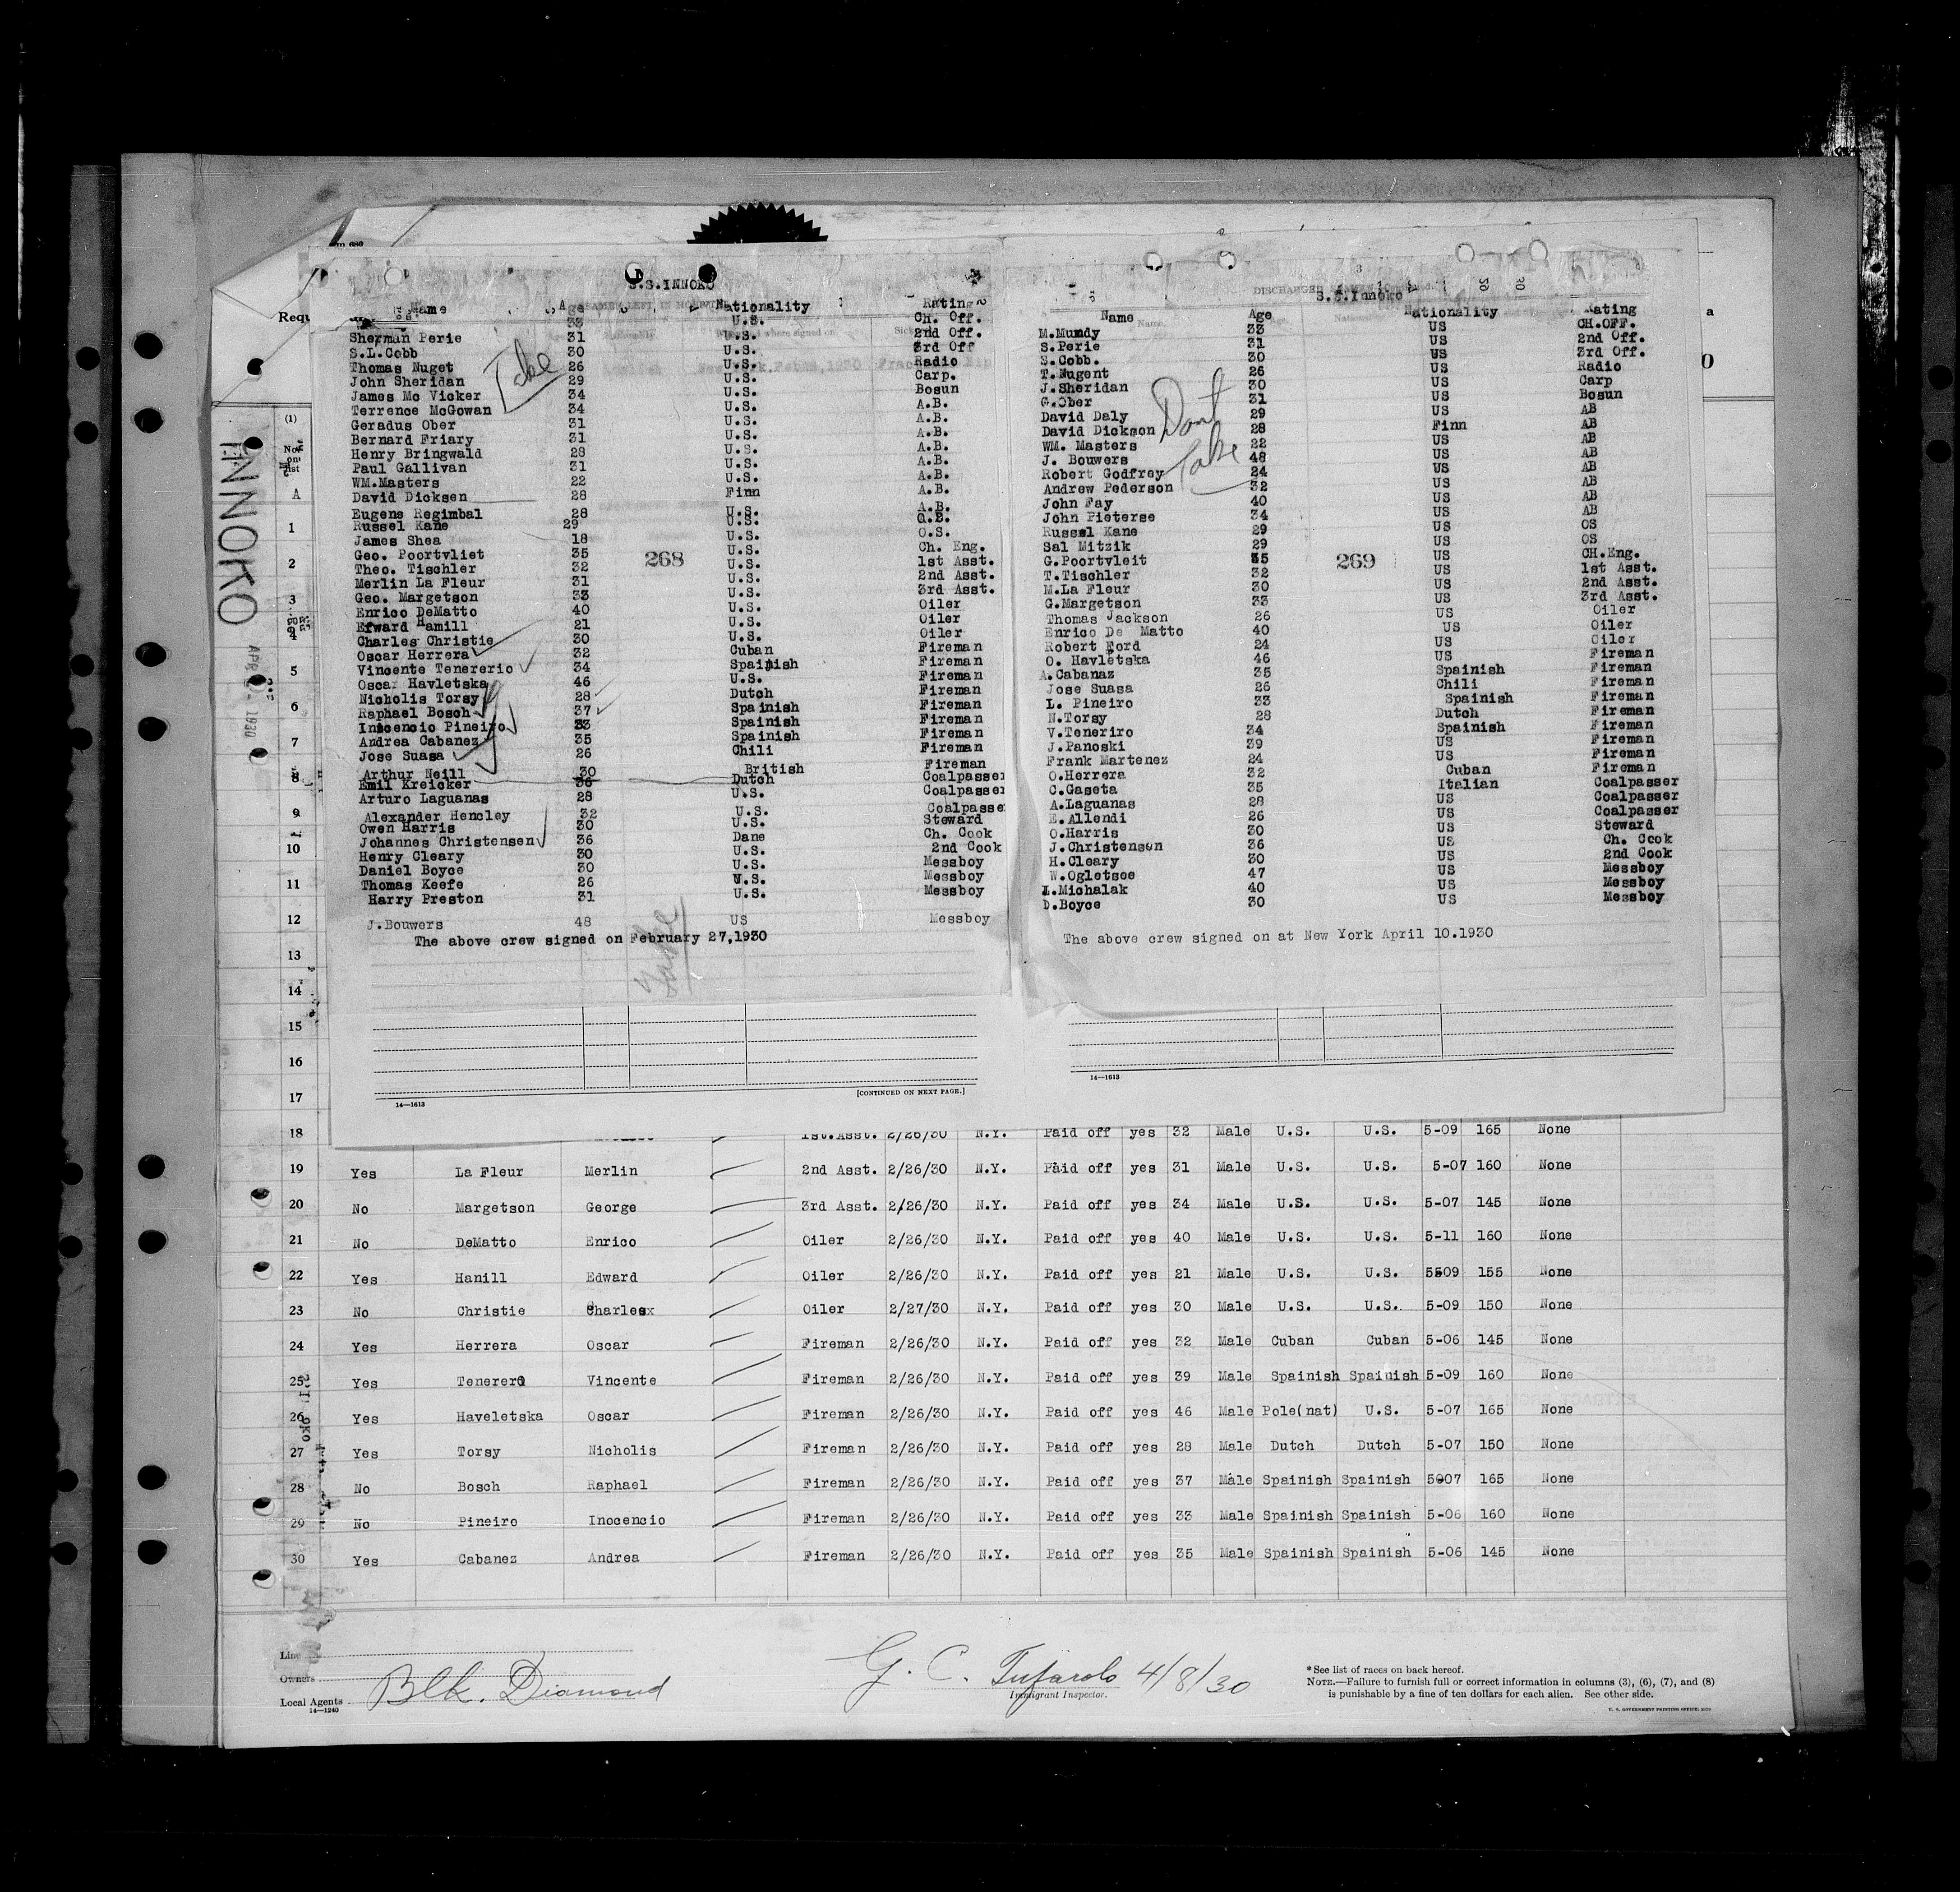 S.S.INNOKO
Name Age Nationality Rating
33 U.S. CH. Off.
Sherman Perie 31 U.S. 2nd Off.
S.L.Cobb 30 U.S. 3rd Off
Thomas Nuget 26 U.S. Radio
John Sheridan 29 U.S. Carp.
James Mc Vicker 34 U.S. Bosun
Terrence McGowan 34 U.S. A.B.
Geradus Ober 31 U.S. A.B.
Bernard Friary 31 U.S. A.B.
Henry Bringwald 28 U.S. A.B.
Paul Gallivan 31 U.S. A.B.
WM.Masters 22 U.S. A.B.
David Dicksen 28 Finn A.B.
Eugene Regimbal 28 U.S. A.B.
Russel Kane 29 U.S. O.S.
James Shea 18 U.S. O.S.
Geo. Poortvliet 35 U.S. Ch. Eng.
Theo. Tischler 32 U.S. 1st Asst.
Merlin La Fleur 31 U.S. 2nd Asst.
Geo. Margetson 33 U.S. 3rd Asst.
Enrico DeMatto 40 U.S. Oiler
Efward Hamill 21 U.S. Oiler
Charles Christie 30 U.S. Oiler
Oscar Herrera 32 Cuban Fireman
Vincente Tenererio 34 Spainish Fireman
Oscar Havletska 46 U.S. Fireman
Nicholis Torsy 28 Dutch Fireman
Raphael Bosch 37 Spainish Fireman
Inocencio Pineiro 33 Spainish Fireman
Andrea Cabanez 35 Spainish Fireman
Jose Suasa 26 Chili Fireman
Arthur Neill 30 British Fireman
Emil Kreicker 36 Dutch Coalpasser
Arturo Laguanas 28 U.S. Coalpasser
Alexander Hencley 32 U.S. Coalpasse
Owen Harris 30 U.S. Steward
Johannes Christensen 36 Dane Ch. Cook
Henry Cleary 30 U.S. 2nd Cook
Daniel Boyce 30 U.S. Messboy
Thomas Keefe 26 U.S. Messboy
Harry Preston 31 U.S. Messboy
J.Bouwers 48 US Messboy
The above crew signed on February 27,1930
Take
268
Take
[CONTINUED ON NEXT PAGE.]
14—1613
S.S.Innoko
Name Age Nationality Rating
M.Mundy 33 US CH.OFF.
S.Perie 31 US 2nd Off.
S.Cobb. 30 US 3rd Off.
T.Nugent 26 US Radio
J.Sheridan 30 US Carp
G.Ober 31 US Bosun
David Daly 29 US AB
David Dickson 28 Finn AB
WM. Masters 22 US AB
J. Bouwers 48 US AB
Robert Godfrey 24 US AB
Andrew Pederson 32 US AB
John Fay 40 US AB
John Pieterse 34 US AB
Russel Kane 29 US OS
Sal Mitzik 29 US OS
G.Poortvleit 35 US CH.Eng.
T.Tischler 32 US 1st Asst.
M.La Fleur 30 US 2nd Asst.
G.Margetson 33 US 3rd Asst.
Thomas Jackson 26 US Oiler
Enrico De Matto 40 US Oiler
Robert Ford 24 US Oiler
O. Havletska 46 US Fireman
A.Cabanaz 35 Spainish Fireman
Jose Suasa 26 Chili Fireman
L. Pineiro 33 Spainish Fireman
N.Torsy 28 Dutch Fireman
V.Teneriro 34 Spainish Fireman
J.Panoski 39 US Fireman
Frank Martenez 24 US Fireman
O.Herrera 32 Cuban Fireman
C.Gaseta 35 Italian Coalpasser
A.Laguanas 28 US Coalpasser
E.Allendi 26 US Coalpasser
O.Harris 30 US Steward
J.Christenson 36 US Ch. Cook
H.Cleary 30 US 2nd Cook
W.Ogletsoe 47 US Messboy
L.Michalak 40 US Messboy
D.Boyce 30 US Messboy
The above crew signed on at New York April 10.1930
Dont
Take
269
14—1613
INNOKO
APR 1930
Requ
(1)
A
1
2
3
4
5
6
7
8
9
10
11
12
13
14
15
16
17
18 1st.Asst. 2/26/30 N.Y. Paid off yes 32 Male U.S. U.S. 5-09 165 None
19 Yes La Fleur Merlin 2nd Asst. 2/26/30 N.Y. Paid off yes 31 Male U.S. U.S. 5-07 160 None
20 No Margetson George 3rd Asst. 2/26/30 N.Y. Paid off yes 34 Male U.S. U.S. 5-07 145 None
21 No DeMatto Enrico Oiler 2/26/30 N.Y. Paid off yes 40 Male U.S. U.S. 5-11 160 None
22 Yes Hanill Edward Oiler 2/26/30 N.Y. Paid off yes 21 Male U.S. U.S. 5509 155 None
23 No Christie Charlesx Oiler 2/27/30 N.Y. Paid off yes 30 Male U.S. U.S. 5-09 150 None
24 Yes Herrera Oscar Fireman 2/26/30 N.Y. Paid off yes 32 Male Cuban Cuban 5-06 145 None
25 Yes Tenerero Vincente Fireman 2/26/30 N.Y. Paid off yes 39 Male Spainish Spainish 5-09 160 None
26 Yes Haveletska Oscar Fireman 2/26/30 N.Y. Paid off yes 46 Male Pole(nat) U.S. 5-07 165 None
27 Yes Torsy Nicholis Fireman 2/26/30 N.Y. Paid off yes 28 Male Dutch Dutch 5-07 150 None
28 No Bosch Raphael Fireman 2/26/30 N.Y. Paid off yes 37 Male Spainish Spainish 5007 165 None
29 No Pineiro Inocencio Fireman 2/26/30 N.Y. Paid off yes 33 Male Spainish Spainish 5-06 160 None
30 Yes Cabanez Andrea Fireman 2/26/30 N.Y. Paid off yes 35 Male Spainish Spainish 5-06 145 None
Line
Owners
Local Agents Blk. Diamond
14—1240
G. C. Tufarolo 4/8/30
Immigrant Inspector.
*See list of races on back hereof.
NOTE.—Failure to furnish full or correct information in columns (3), (6), (7), and (8)
is punishable by a fine of ten dollars for each alien. See other side.